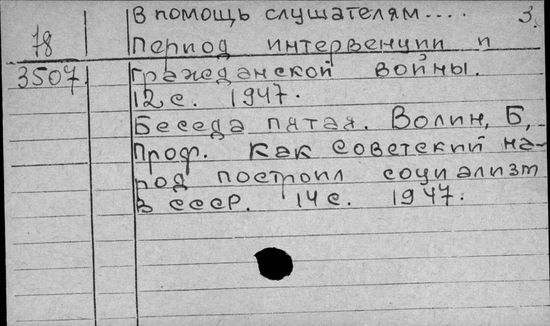 В помощь слушателям.... 3.
78 Период интервенции и
3507 гражданской войны.
12 с. 1947.
Беседа пятая. Волин, Б,
Проф. Как советский на-
род построил социализм
в СССР. 14 с. 1947.